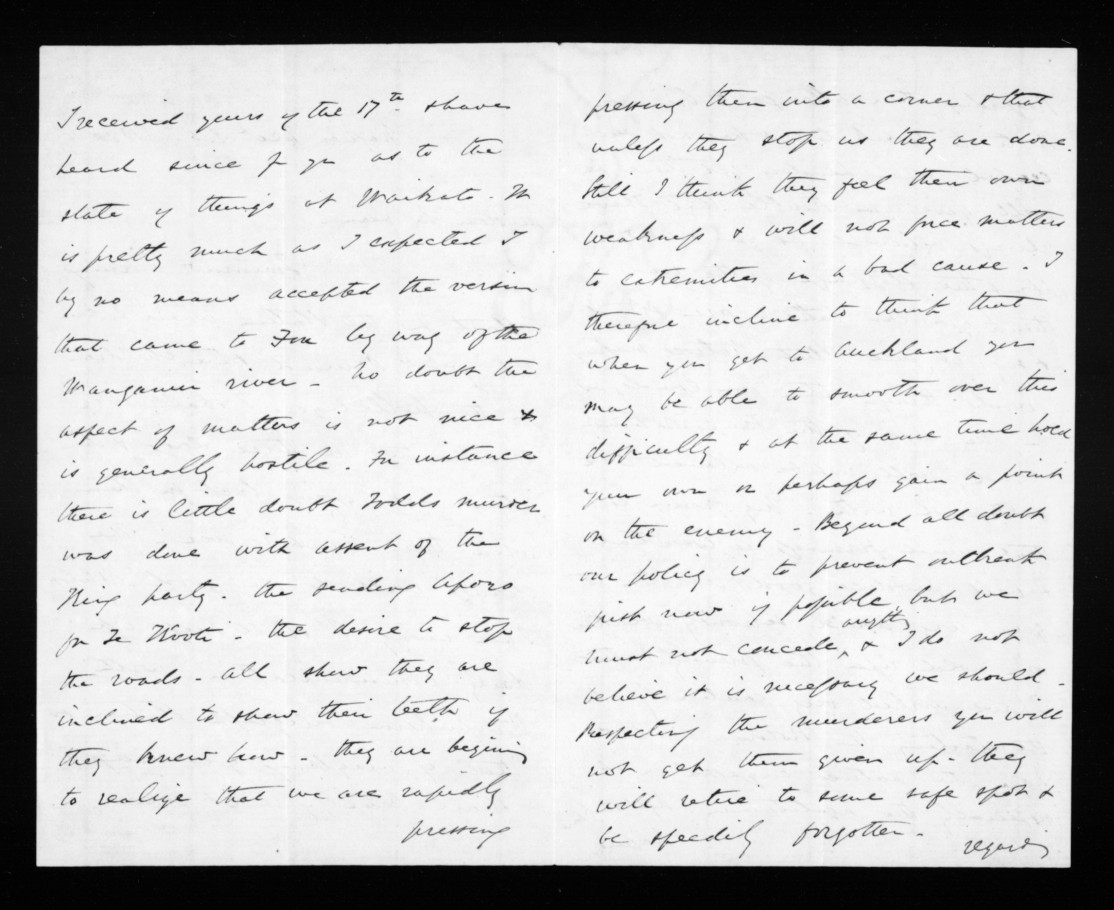 I received yours of the 17th & have
heard since fr you as to the
state of things at Waikato. It
is pretty much as I expected I
by no means accepted the version
that came to you by way of the
Wanganui river - No doubt the
aspect of matters is not nice &
is generally hostile. For instance
there is little doubt Todds murder
was done with assent of the
King party. the sending
for Te Kooti - the desire to stop
the roads - all show they are
inclined to show their teeth if
they knew how - they are begining
to realize that we are rapidly
pressing
pressing them into a corner & that
unless they stop us they are done.
Still I think they feel their own
weakness & will not force matters
to extremities in a bad cause. I
therefore incline to think that
when you get to Auckland you
may be able to smooth over this
difficulty & at the same time hold
your own or perhaps gain a point
on the enemy - Beyond all doubt
our policy is to prevent outbreak
just now if possible but we
must not concede anything & I do not
believe it is necessary we should -
Respecting the murderers you will
not get them given up - they
will retire to some safe spot &
be speedily forgotten -